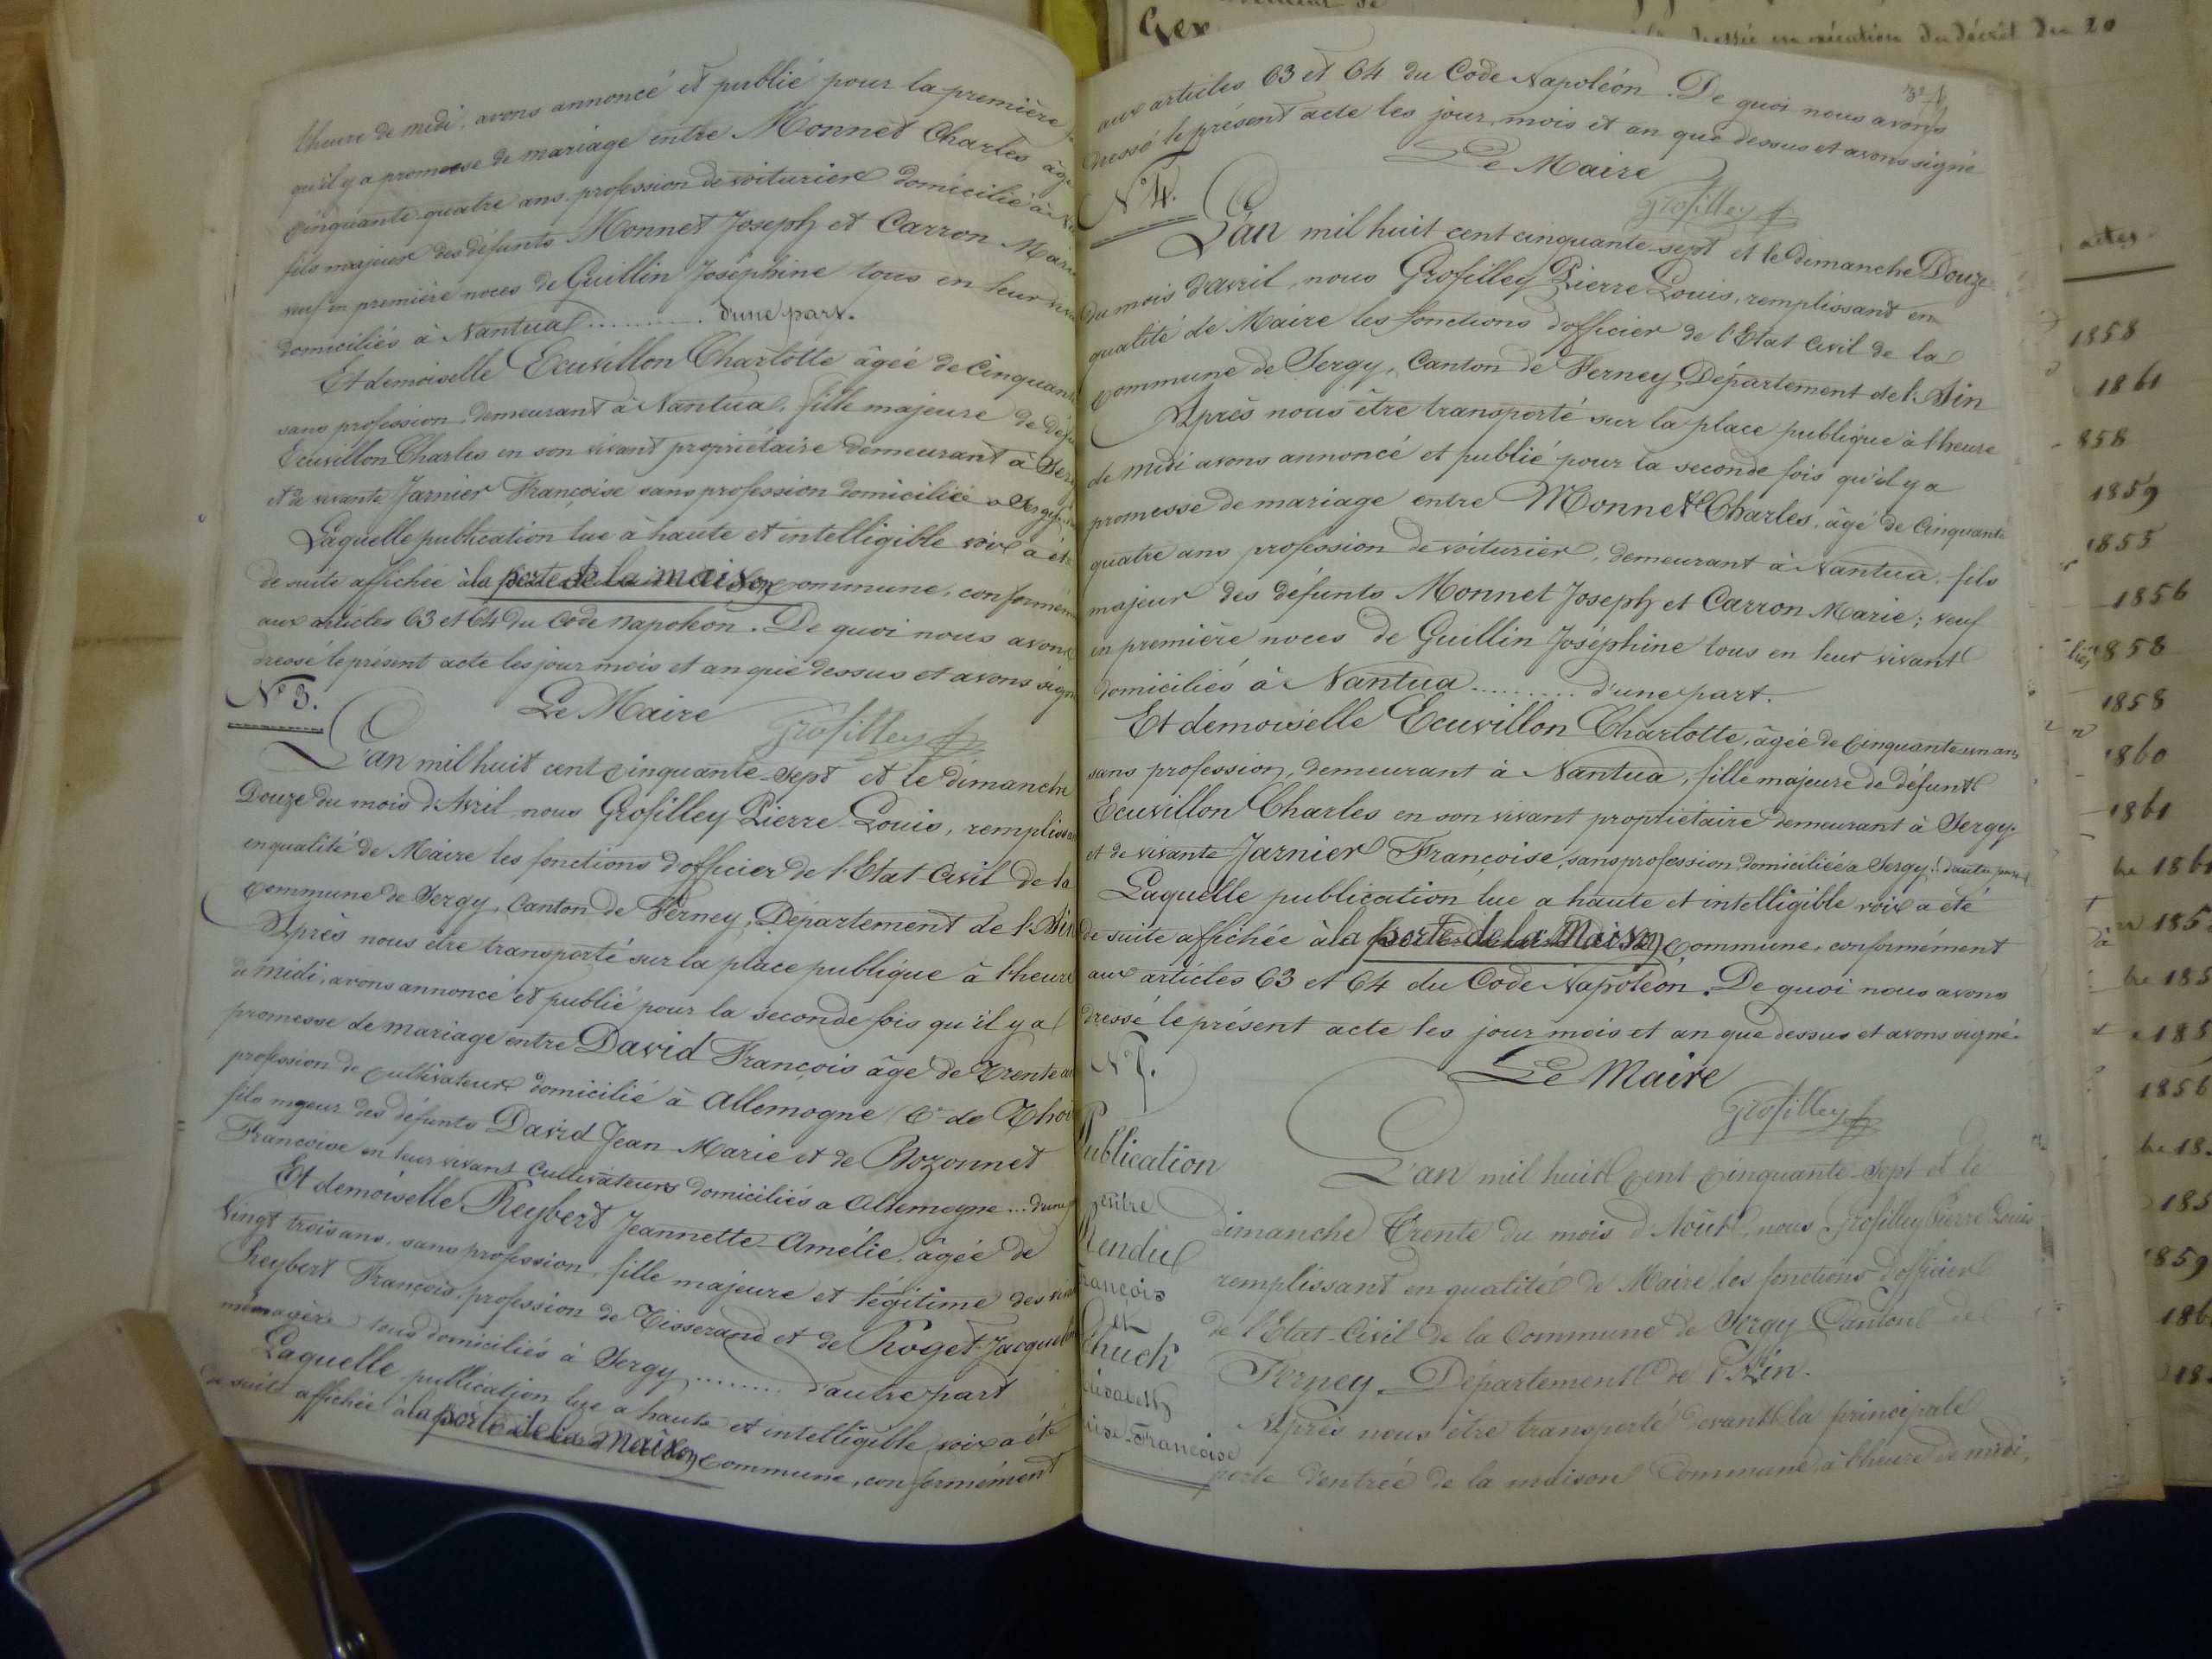 l'heure de midi, avons annoncé et publié pour la première
qu'il y a promesse de mariage entre Monnet Charles âgé
cinquante-quatre ans, profession de voiturier domicilié à
fils majeur des défunts Monnet Joseph et Carron Marie
veuf en première noces de Guillin Joséphine tous en leur viv
domiciliés à Nantua .......... d'une part.
Et demoiselle Ecuvillon Charlotte âgée de Cinquante
sans profession, demeurant à Nantua, fille majeure de déf
Ecuvillon Charles en son vivant propriétaire demeurant à Serg
et de vivante Jarnier Françoise sans profession domiciliée à Sergy
Laquelle publication lue à haute et intelligible voix a ét
de suite affichée à la porte de la maison commune, conformém
aux articles 63 et 64 du Code Napoléon. De quoi nous avons
dressé le présent acte les jour mois et an que dessus et avons signé
Le Maire
Grosfilley
N° 3.
L'an mil huit cent cinquante-sept et le dimanche
Douze du mois d'Avril, nous Grosfilley Pierre-Louis, remplissan
en qualité de Maire les fonctions d'officier de l'Etat-Civil de la
commune de Sergy, Canton de Ferney, Département de l'Ain
Après nous être transporté sur la place publique à l'heure
de midi, avons annoncé et publié pour la seconde fois qu'il y a
promesse de mariage entre David François âgé de Trente a
profession de cultivateur domicilié à Allemogne Cne de Thoi
fils mjeur des défunts David Jean-Marie et de Bozonnet
Françoise en leur vivant Cultivateurs domiciliés à Allemogne ... d'une
Et demoiselle Reybert Jeannette-Amélie, âgée de
Vingt trois ans, sans profession, fille majeure et légitime des viv
Reybert François, profession de Tisserand et de Roget Jacquel
ménagère tous domiciliés à Sergy ......... d'autre part
Laquelle publication lue a haute et intelligible voix a été
de suite affichée à la porte de la Maison commune, conformément
aux articles 63 et 64 du Code Napoléon. De quoi nous avons
dressé le présent acte les jour, mois et an que dessus et avons signé
Le Maire
Grosfilley
N° 4.
L'an mil huit cent cinquante-sept et le dimanche Douze
du mois d'avril, nous Grosfilley Pierre Louis, remplissant en
qualité de Maire les fonctions d'officier de l'Etat Civil de la
commune de Sergy, Canton de Ferney, Département de l'Ain
Après nous être transporté sur la place publique à l'heure
de midi avons annoncé et publié pour la seconde fois qu'il y a
promesse de mariage entre Monnet Charles, âgé de Cinquante
quatre ans profession de voiturier, demeurant à Nantua, fils
majeur des défunts Monnet Joseph et Carron Marie; veuf
en première noces de Guillin Joséphine tous en leur vivant
domiciliés à Nantua .......... d'une part.
Et demoiselle Ecuvillon Charlotte, âgée de Cinquante un ans
sans profession, demeurant à Nantua, fille majeure de défunt
Ecuvillon Charles en son vivant propriétaire demeurant à Sergy.
et de vivante Jarnier Françoise, sans profession domiciliée à Sergy.. d'autre part
Laquelle publication lue a haute et intelligible voix a été
de suite affichée à la porte de la Maison commune, conformément
aux articles 63 et 64 du Code Napoléon. De quoi nous avons
dressé le présent acte les jour mois et an que dessus et avons signé.
Le Maire
Grosfilley
Publication
entre
Rendu
François
et
Chuck
Elisabeth
Françoise
L'an mil huit cent cinquante-sept et le
dimanche Trente du mois d'Août, nous Grosfilley Pierre Louis
remplissant en qualité de Maire les fonctions d'officier
de l'Etat-Civil de la Commune de Sergy Canton de
Ferney, Département de l'Ain.
Après nous être transporté devant la principale
porte d'entrée de la maison Commune, à l'heure de midi,
Gex
en exécution du décret du 20
actes
1858
1861
858
1859
1855
1856
1858
1858
1860
1861
1856
1859